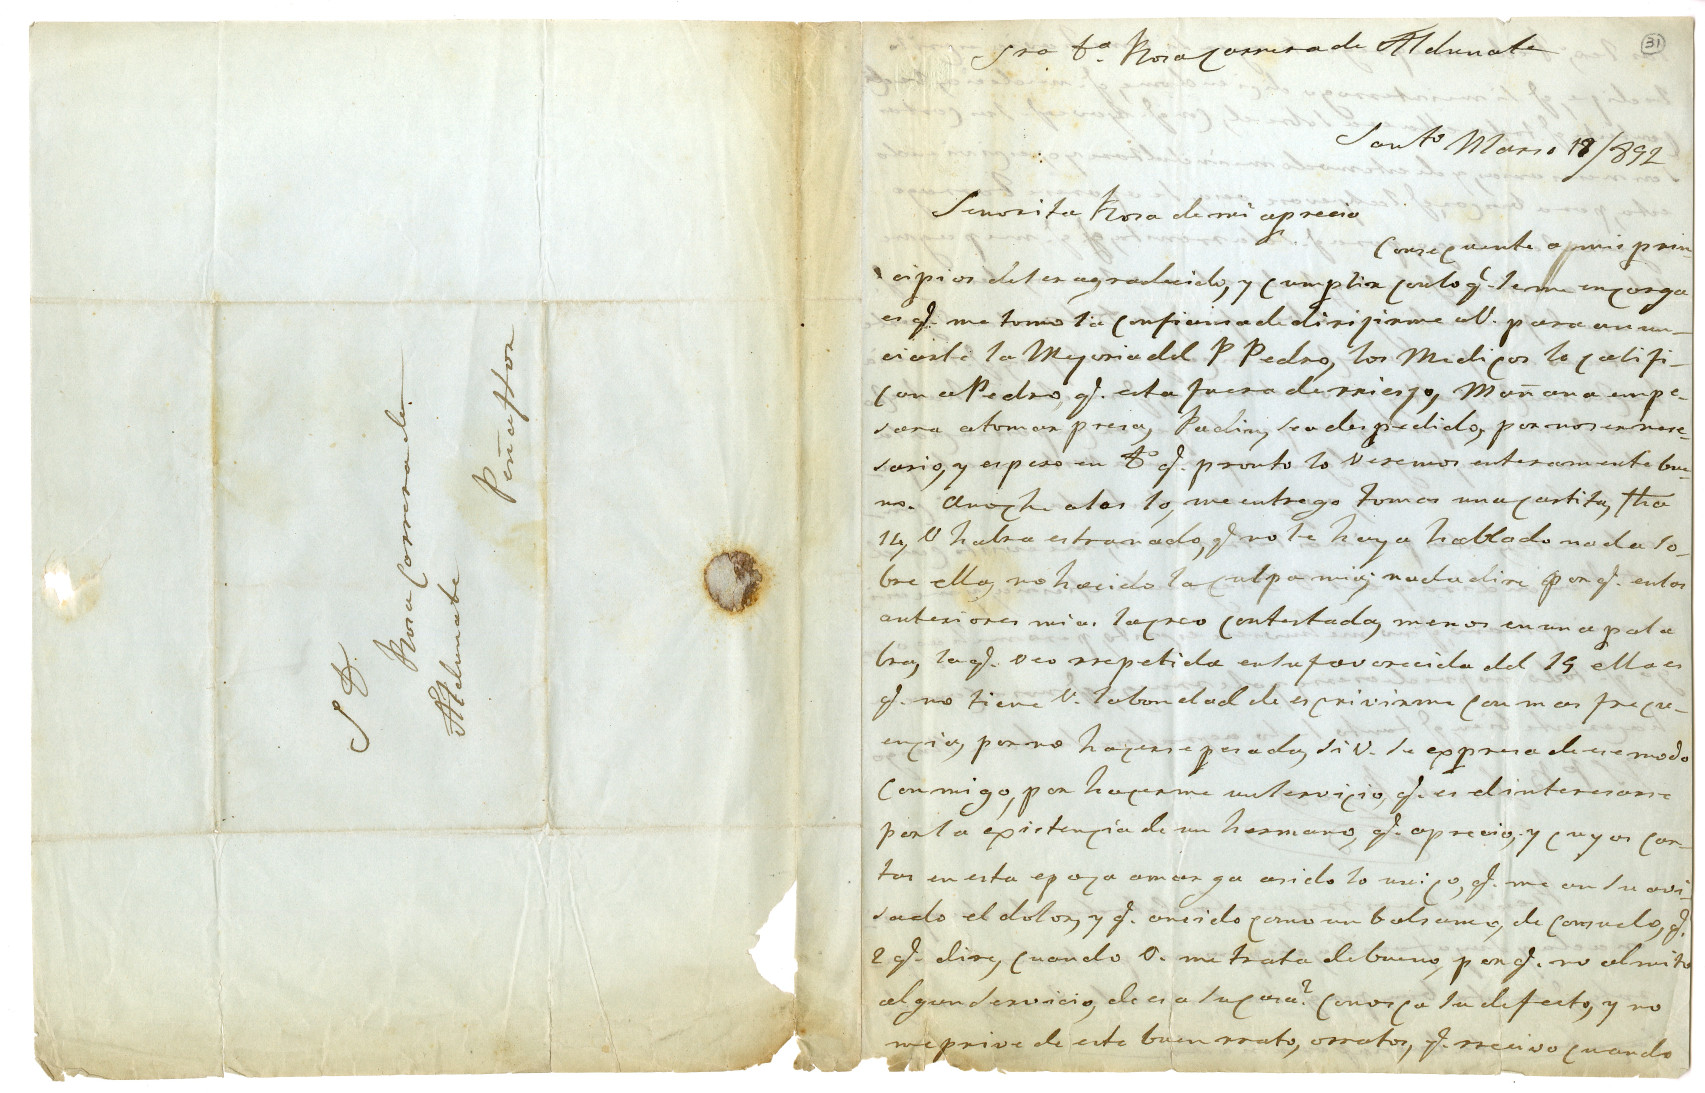 S D.
Rosa Carrera de
Aldunate
Peñaflor
31
Sra Da. Rosa Carrera de Aldunate
Santo Marso 18/852
Senorita Rosa de mi aprecio
Consecuente a mis prin-
cipios del ser agradecido, y cumplir con lo q. se me encarga
es q. me tomo la confiansa de dirijirme a V. para anun-
ciarle la Mejoria del P Pedro, los Medicos lo califi-
can a Pedro, q. esta fuera de rriesgo, Mañana empe-
sara a tomar presa, Padin, sea despedido, por no ser nese-
sario, y espero en Do q. pronto lo veremos enteramente bue-
no. Anoche a las 10, me entrego tomas una cartita, fha
14, V habra estranado, q. no le haya hablado nada so-
bre ella, no ha cido la culpa mia; nada dire porq. en las
anteriores mias la creo contestada, menos en una pala
bra, la q. veo rrepetida en su favorecida del 15 ella es
q. no tiene V. la bondad de escrivirme con mas frecu-
encia, por no hacerse pesada, si V. se expresa de ese modo
conmigo, por hacerme un servicio, q. es el interesarse
por la existencia de un hermano, q. aprecio, y cuyas car-
tas en esta epoca amarga asido lo unico, q. me an suavi-
sado el dolor, y q. ancido como un balsamo, de consuelo, q.
2 q. dire, cuando V. me trata de bueno, porq. no almito
algun servicio, de esa su casa? conosca su defecto, y no
me prive de este buen rrato, orratos, q. rrecivo cuando